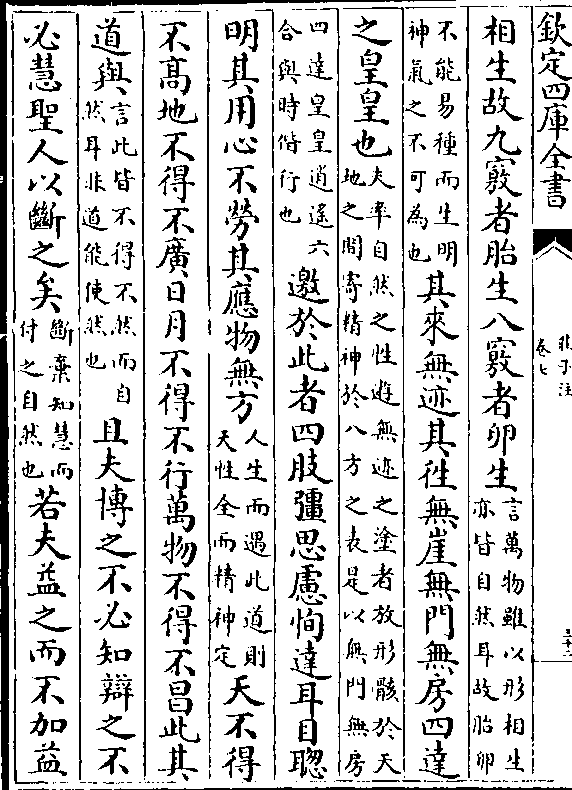 欽定四庫全書
莊子注
卷七
三十二
相生故九竅者胎生八竅者卵生言萬物雖以形相生亦皆自然耳故胎卵
不能易種而生明神氣之不可為也其來無迹其徃無崖無門無房四達
之皇皇也夫率自然之性遊無迹之塗者放形骸於天地之間寄精神於八方之表是以無門無房
四達皇皇逍遙六合與時偕行也邀於此者四肢彊思慮恂達耳目聰
明其用心不勞其應物無方人生而遇此道則天性全而精神定天不得
不髙地不得不廣日月不得不行萬物不得不昌此其
道與言此皆不得不然而自然耳非道能使然也且夫博之不必知辯之不
必慧聖人以斷之矣斷棄知慧而付之自然也若夫益之而不加益